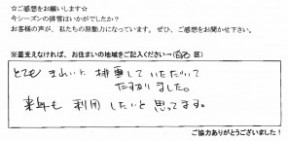 ☆ご感想をお願いします☆
今シーズンの排雪はいかがでしたか？
お客様の声が、私たちの原動力になっています。ぜひ、ご感想をお聞かせ下さい。
※差支えなければ、お住まいの地域をご記入ください→(西 区)
とても きれいに 排雪して いただいて
たすかりました。
来年も 利用 したいと 思ってます。
ご協力ありがとうございました！